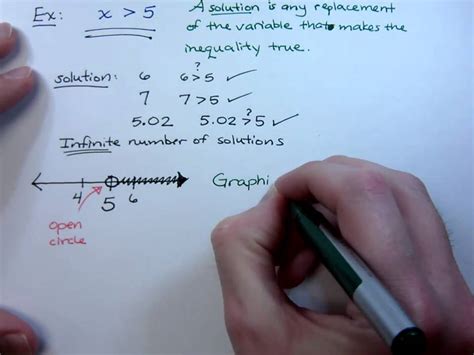 Ex: x > 5
A solution is any replacement
of the variable that makes the
inequality true.
solution: 6 6 >? 5 ✓
7 7 > 5 ✓
5.02 5.02 >? 5 ✓
Infinite number of solutions
4 5 6
Graphi
open
circle